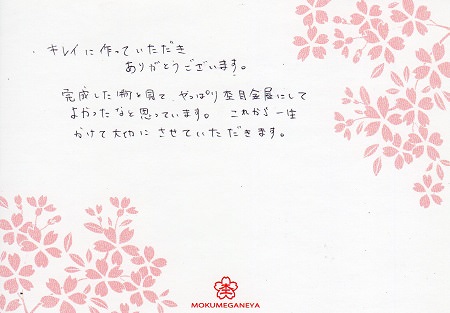 キレイに作っていただき
ありがとうございます。
完成した指輪を見て、やっぱり杢目金屋にして
よかったなと思っています。 これから一生
かけて大切に させていただきます。
杢
MOKUMEGANEYA